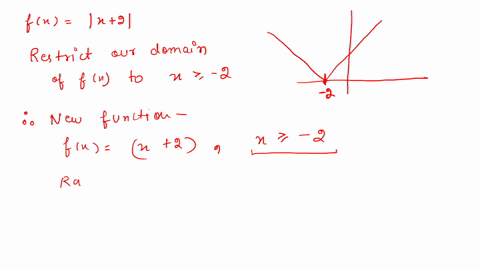 f(x) = |x+2|
Restrict our domain
of f(x) to x ≥ -2
-2
∴ New function -
f(x) = (x + 2) , x ≥ -2
Ra